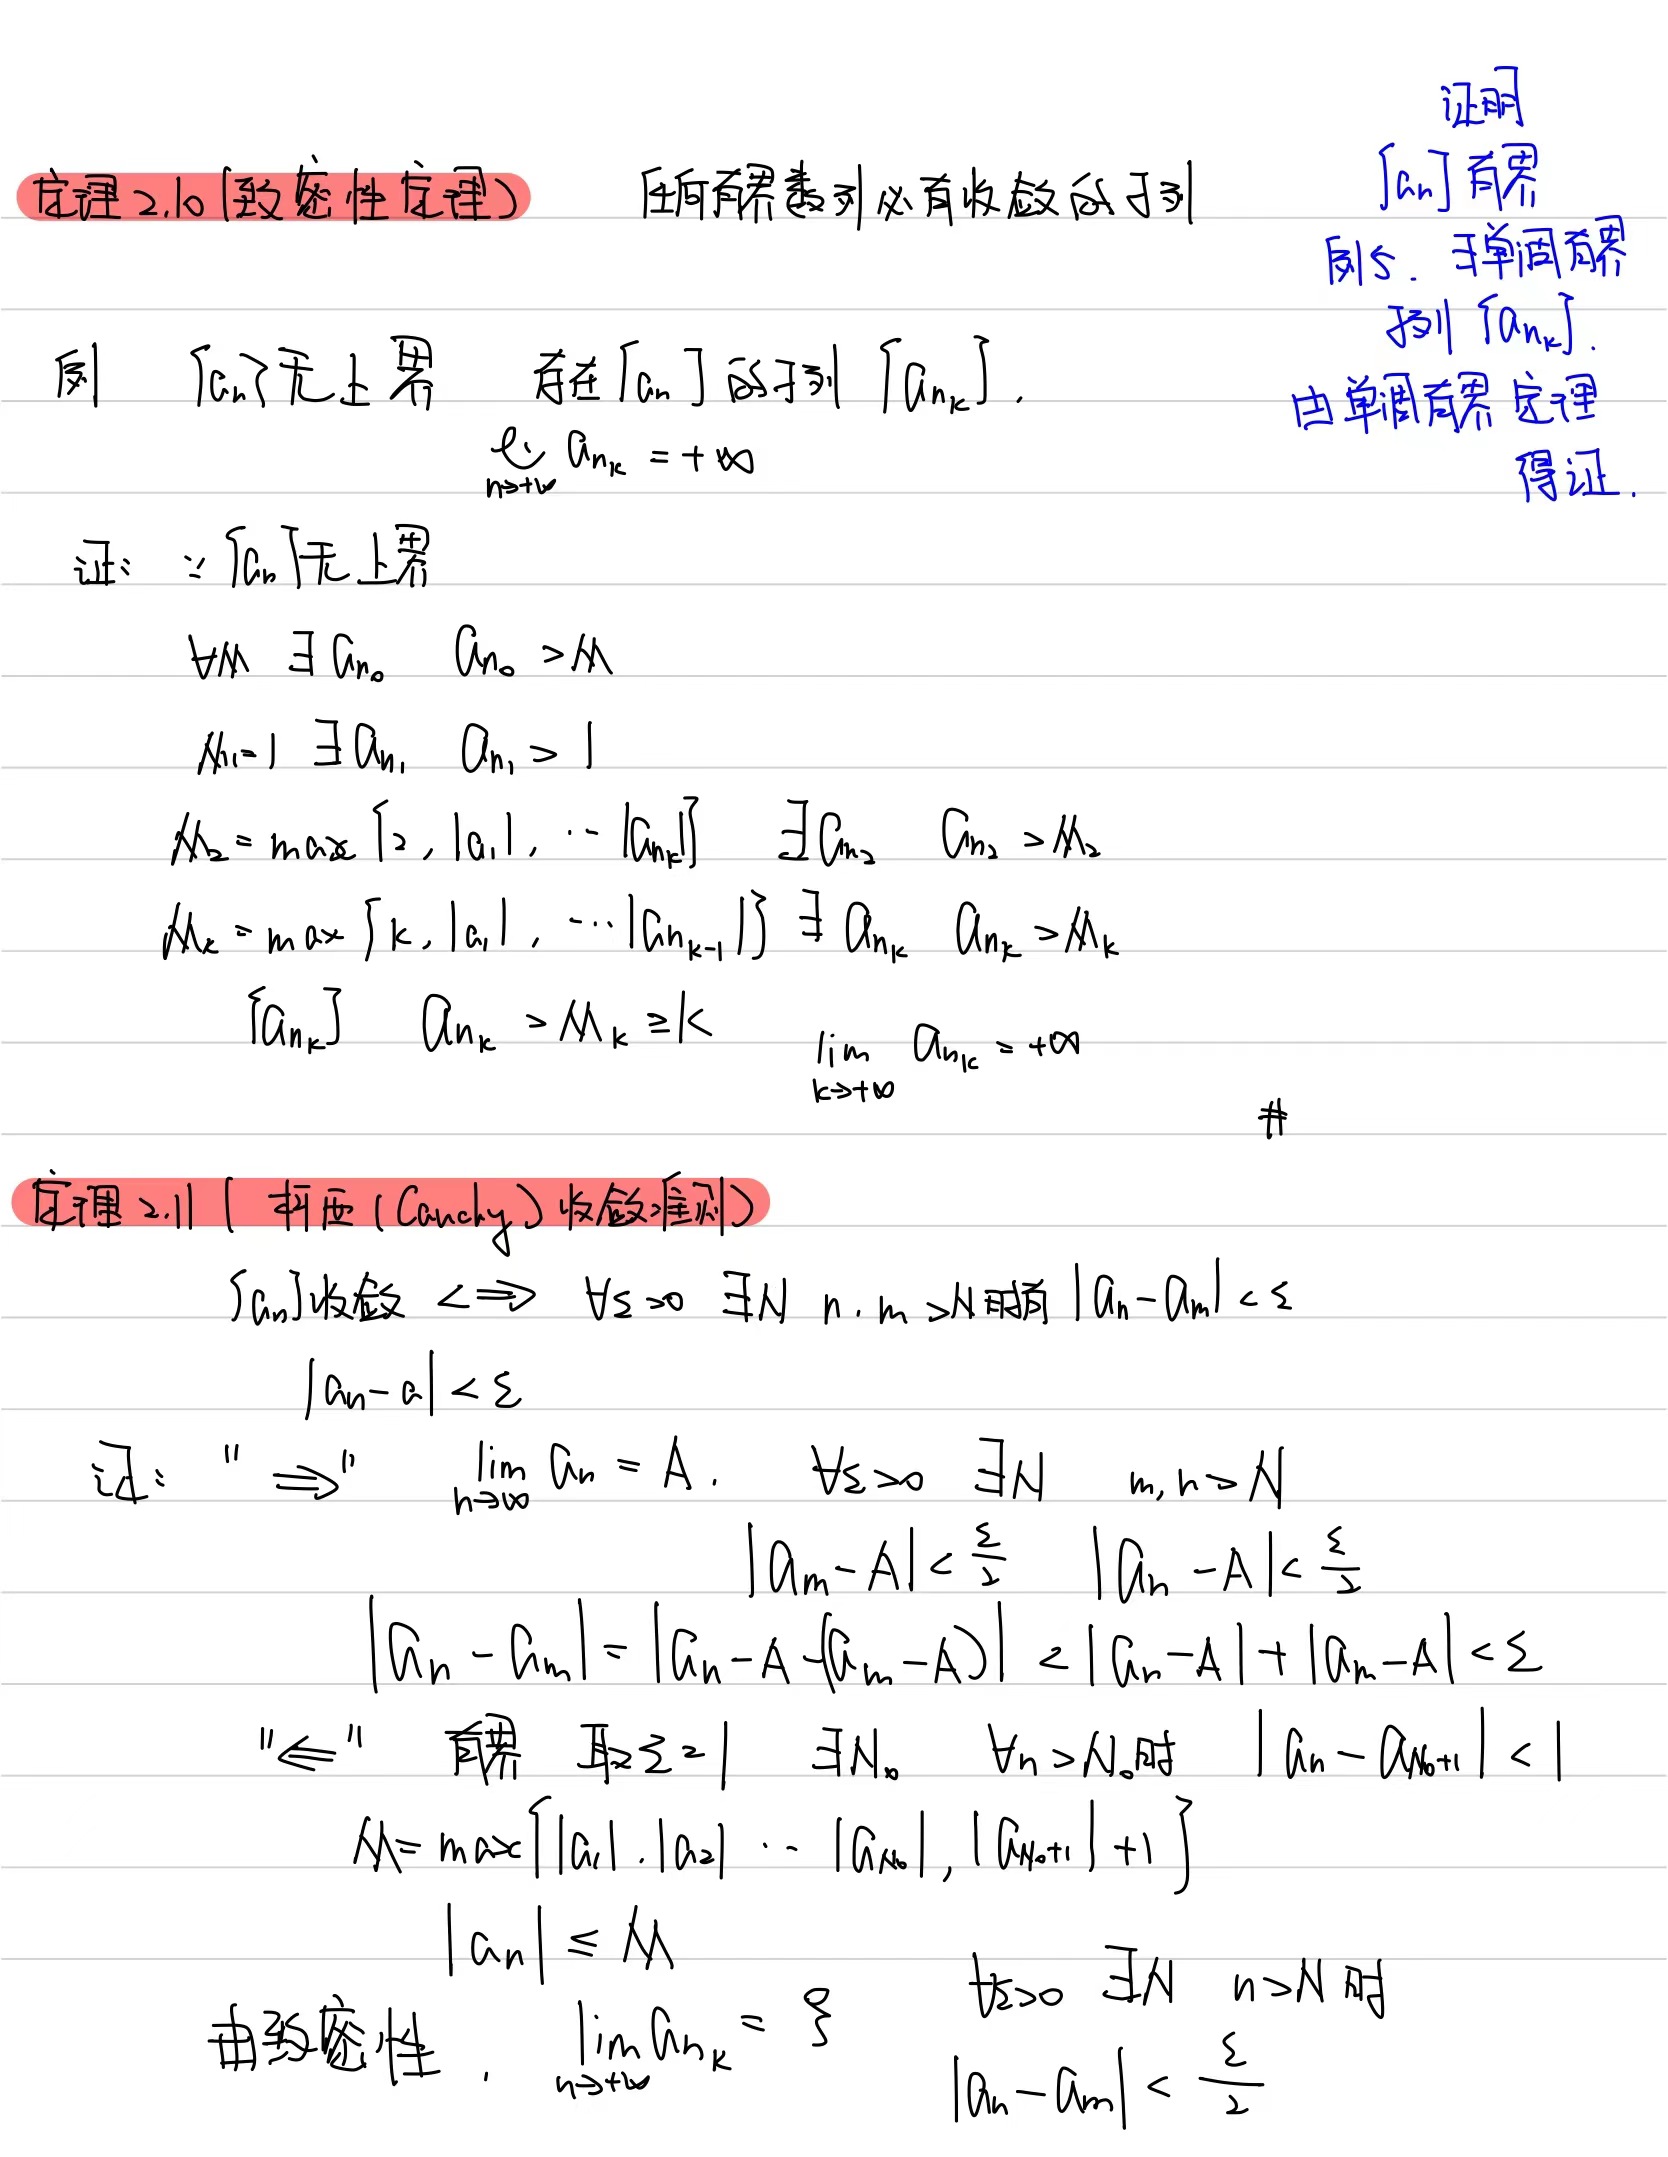 定理2.10(致密性定理) 任何有界数列必有收敛的子列
证明
{an}有界
例5. ∃单调有界
子列{a_{n_k}}.
由单调有界定理
得证.
例 {an}无上界 存在{an}的子列{a_{n_k}}.
lim_{n→+∞} a_{n_k} = +∞
证: ∵{an}无上界
∀M ∃a_{n_0} a_{n_0} > M
M_1=1 ∃a_{n_1} a_{n_1} > 1
M_2 = max{2, |a_1|, … |a_{n_k}|} ∃a_{n_2} a_{n_2} > M_2
M_k = max{k, |a_1|, …|a_{n_{k-1}}|} ∃a_{n_k} a_{n_k} > M_k
{a_{n_k}} a_{n_k} > M_k ≥ k lim_{k→+∞} a_{n_k} = +∞
#
定理2.11(柯西(Cauchy)收敛准则)
{an}收敛 <=> ∀ε>0 ∃N n.m >N时有 |a_n - a_m| < ε
|a_n - a| < ε
证: "⇒" lim_{n→∞} a_n = A. ∀ε>0 ∃N m,n > N
|a_m - A| < ε/2 |a_n - A| < ε/2
|a_n - a_m| = |a_n - A - (a_m - A)| < |a_n - A| + |a_m - A| < ε
"⇐" 有界 取ε=1 ∃N_0 ∀n > N_0时 |a_n - a_{N_0+1}| < 1
M = max{|a_1|.|a_2| … |a_{N_0}|, |a_{N_0+1}|+1}
|a_n| ≤ M
由致密性, lim_{n→+∞} a_{n_k} = ξ ∀ε>0 ∃N n>N时
|a_n - a_m| < ε/2